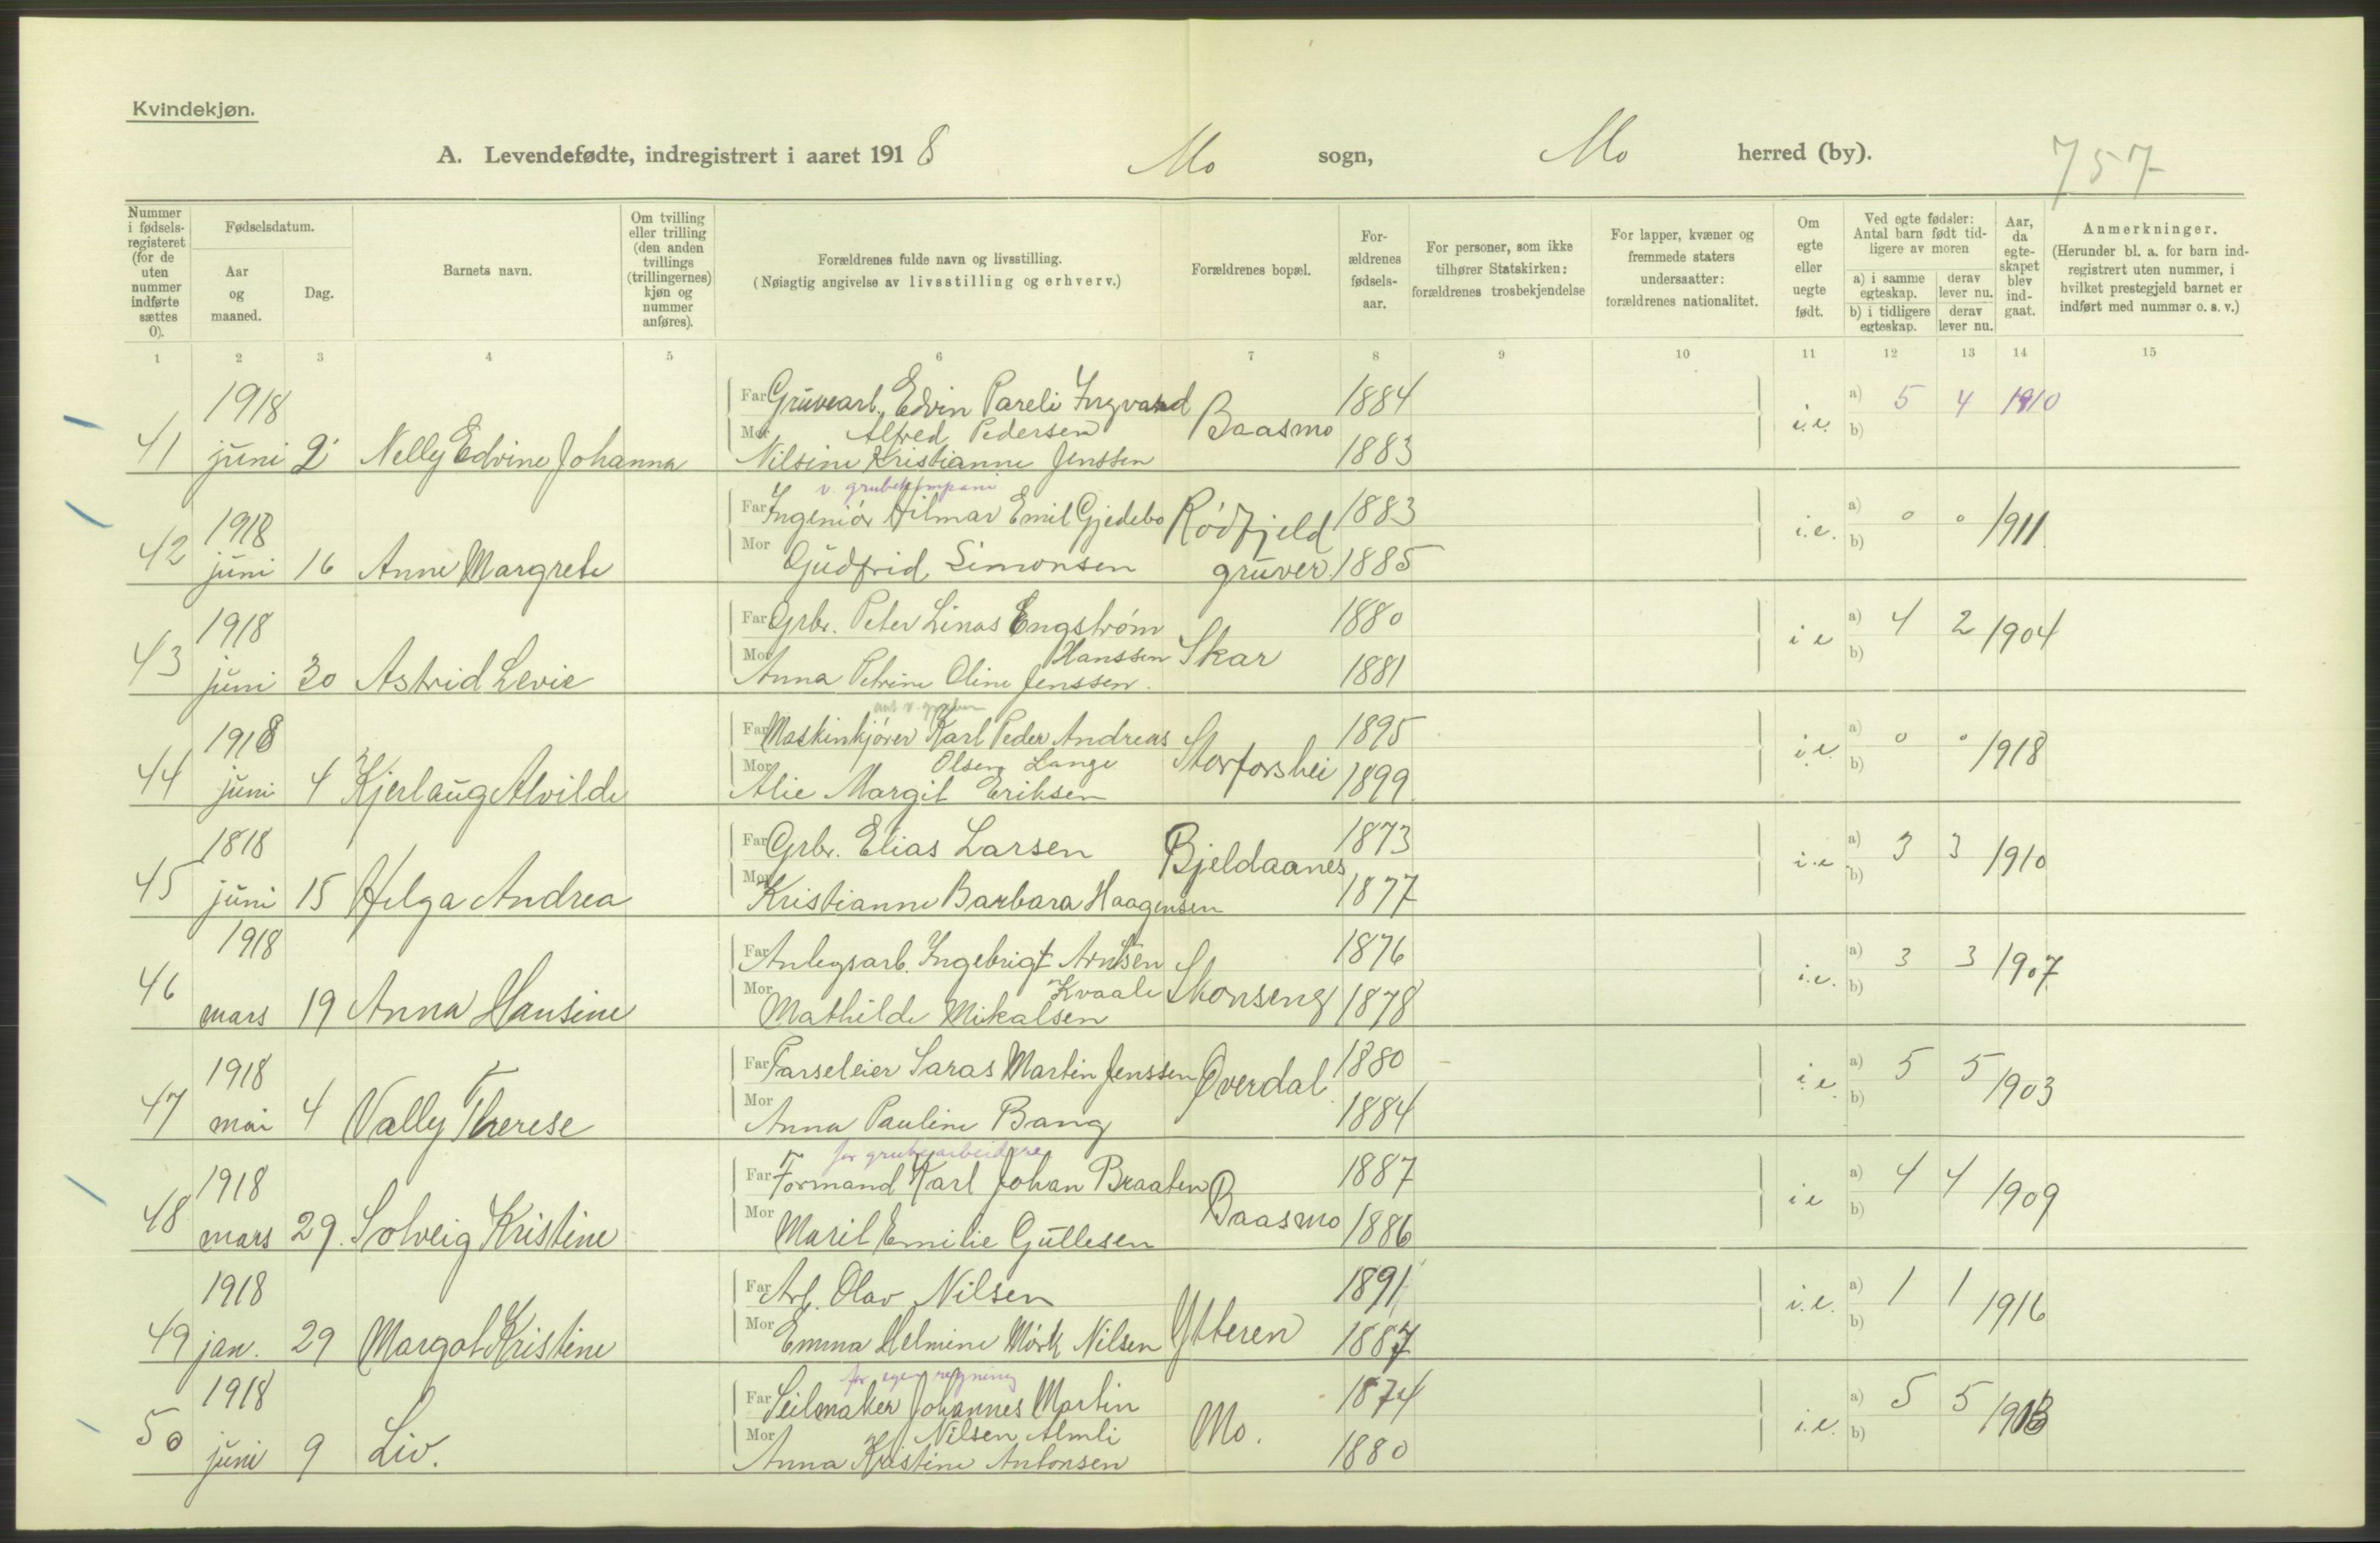 Kvindekjøn.
A. Levendefødte, indregistrert i aaret 1918 Mo sogn, Mo herred (by). 757
Nummer i fødsels-registeret (for de uten nummer indførte sættes 0).
Fødselsdatum.
Aar og maaned.
Dag.
Barnets navn.
Om tvilling eller trilling (den anden tvillings (trillingernes) kjøn og nummer anføres).
Forældrenes fulde navn og livsstilling.
(Nøiagtig angivelse av livsstilling og erhverv.)
Forældrenes bopæl.
For-ældrenes fødsels-aar.
For personer, som ikke tilhører Statskirken: forældrenes trosbekjendelse
For lapper, kvæner og fremmede staters undersaatter: forældrenes nationalitet.
Om egte eller uegte født.
Ved egte fødsler: Antal barn født tid-ligere av moren
a) i samme egteskap. derav lever nu.
b) i tidligere egteskap. derav lever nu.
Aar, da egte-skapet blev ind-gaat.
Anmerkninger.
(Herunder bl. a. for barn ind-registrert uten nummer, i hvilket prestegjeld barnet er indført med nummer o. s. v.)
1 2 3 4 5 6 7 8 9 10 11 12 13 14 15
1918 Far Gruvearb. Edvin Pareli Ingvard 1884 a) 5 4 1910
Mor Alfred Pedersen Baasmo i.e. b)
41 juni 2 Nelly Edvine Johanna Nilsine Kristianne Jenssen 1883
v. grubekompani
1918 Far Ingeniør Hilmar Emil Gjedebo Rødfjeld 1883 a) 0 0 1911
42 juni 16 Anne Margrete Mor Gudfrid Simonsen gruver 1885 i.e. b)
1918 Far Grbr. Peter Linas Engstrøm 1880 a) 4 2 1904
Mor Hanssen Skar i e b)
43 juni 30 Astrid Levie Anna Petrine Oline Jenssen. 1881
1918 Far Maskinkjører Karl Peder Andreas 1895 a) 0 0 1918
Mor Olsen Lange Storforshei i.e. b)
44 juni 4 Kjerlaug Alvilde Alie Margit Eriksen 1899
1818 Far Grbr. Elias Larsen Bjeldaanes 1873 i.e. a) 3 3 1910
45 juni 15 Helga Andrea Mor Kristianne Barbara Haagensen 1877 b)
1918 Far Anlegsarb. Ingebrigt Arntsen 1876 a) 3 3 1907
Mor Kvaale Skonseng i.e. b)
46 mars 19 Anna Hansine Mathilde Mikalsen 1878
1918 Far Parseleier Saras Martin Jenssen Øverdal 1880 i.e. a) 5 5 1903
47 mai 4 Vally Therese Mor Anna Pauline Bang 1884 b)
for grubearbeidere
1918 Far Formand Karl Johan Braaten Baasmo 1887 i e a) 4 4 1909
48 mars 29. Solveig Kristine Mor Maril Emilie Gullesen 1886 b)
1918 Far Arb. Olav Nilsen 1891 i.e. a) 1 1 1916
49 jan. 29 Margot Kristine Mor Emma Helmine Mørk Nilsen Ytteren 1887 b)
for egen regning
1918 Far Seilmaker Johannes Martin 1874 a) 5 5
Mor Nilsen Almli Mo. i.e. b)
50 juni 9 Liv. Anna Kristine Antonsen 1880